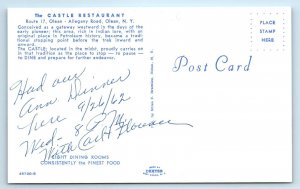 The CASTLE RESTAURANT
Route 17, Olean - Allegany Road, Olean, N. Y.
Conceived as a gateway westward in the days of the
early pioneer; this area, rich in Indian lore, with an
original place in Petroleum history, became a tradi-
tional stopping point before the trek inward and
onward.
The CASTLE, located in the midst, proudly carries on
in that tradition as the place to STOP — to pause —
to DINE and prepare for further endeavor.
PLACE
STAMP
HERE
Post Card
Had our
Ann Dinner
here 9/26/62
Wed - 8 P.M.
With Carl &
EIGHT DINING ROOMS
CONSISTENTLY the FINEST FOOD
DEXTER